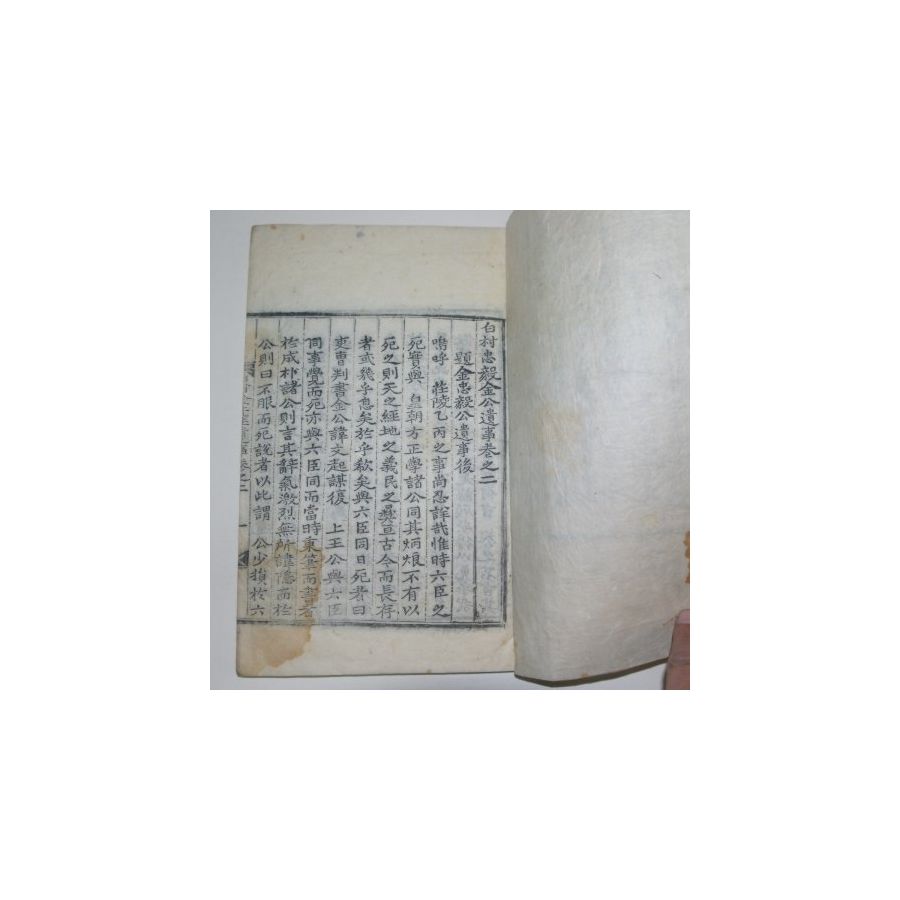 白村忠毅金公遺事卷之二
題金忠毅公遺事後
嗚呼 莊陵乙丙之事尚忍詳哉惟時六臣之
死實與 皇朝方正學諸公同其炳烺不有以
死之則天之經地之義民之彛亘古今而長存
者或幾乎息矣於乎欸矣與六臣同日死者曰
吏曹判書金公諱文起謀復 上王公與六臣
同事覺而死亦與六臣同而當時秉筆而書者
於成朴諸公則言其辭氣激烈無所諱隱而於
公則曰不服而死說者以此謂 公少損於六